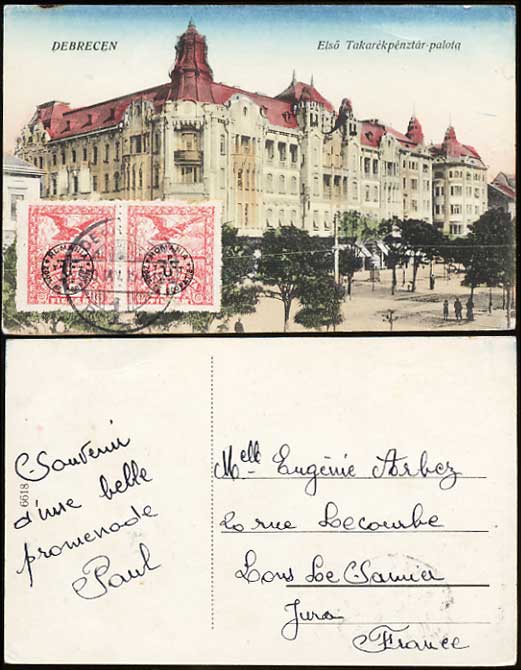 DEBRECEN
Első Takarékpénztár-palota
ROMÂNIA
ROMÂNIA
6618
Souvenir
d'une belle
promenade
Paul
Melle Eugénie Arbez
6 rue Lecourbe
Lons Le Saunier
Jura
France